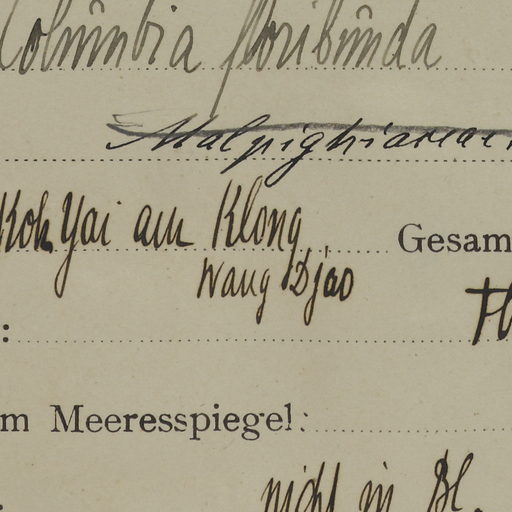 Columbia floribunda
Malpighiaceae
Koh Yai am Klong Gesam
Wang Djao
:
m Meeresspiegel:
nicht in Bl.